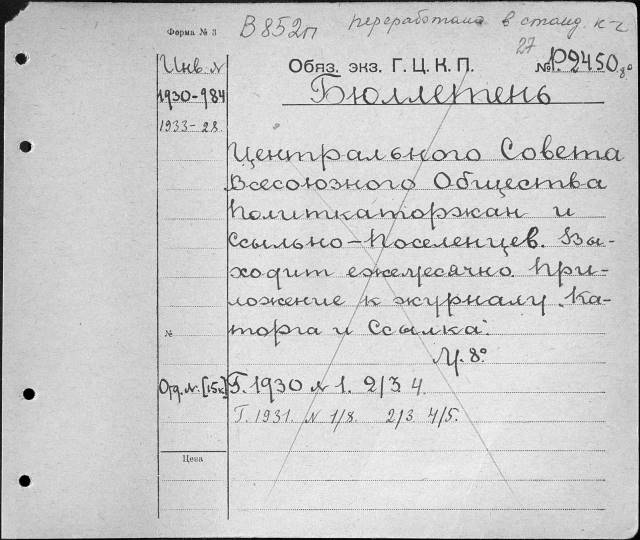 Форма № 3 В852п переработана в станд. к-г
27
Инв. № Обяз. экз. Г.Ц.К.П. № Р2450 8°
1930-984 Бюллетень
1933-28
Центрального Совета
Всесоюзного Общества
Политкаторжан и
Ссыльно-Поселенцев. Вы-
ходит ежемесячно. При-
ложение к журналу „Ка-
№ торга и Ссылка".
М. 8°
Отд. №. [15к] Г. 1930 № 1. 2/3. 4.
Г. 1931. № 1/8. 2/3 4/5.
Цена